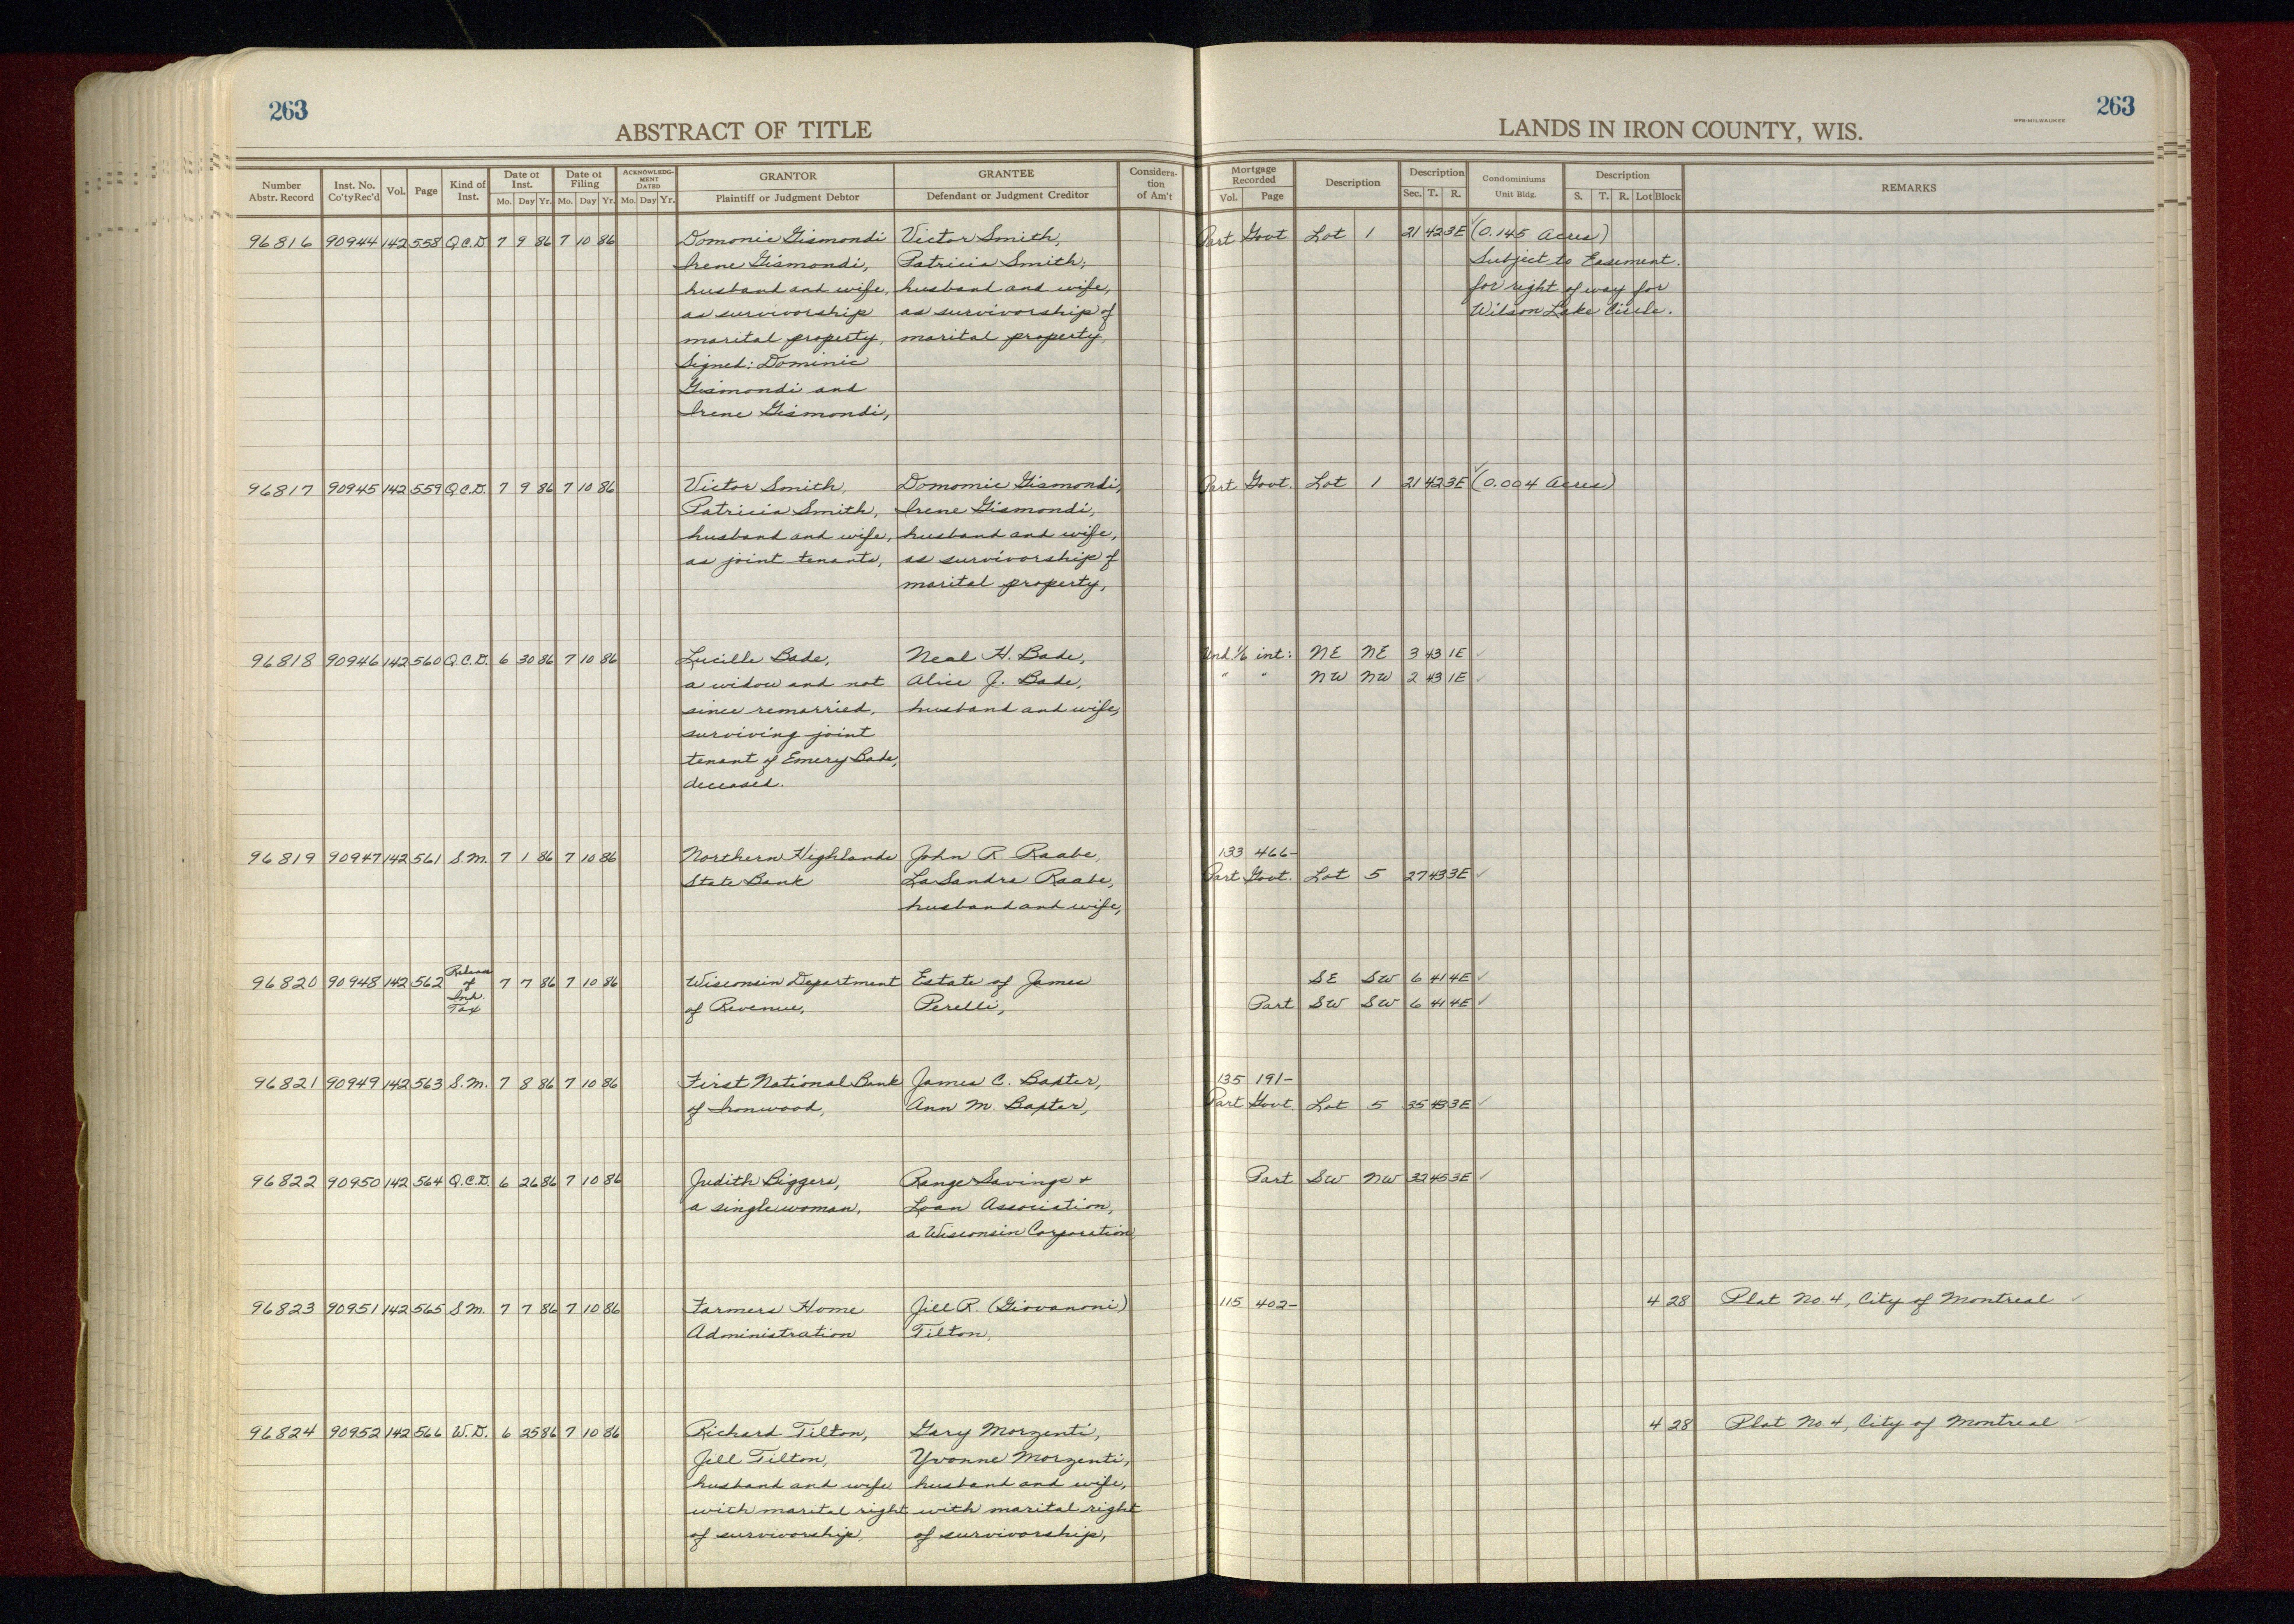 263
263
ABSTRACT OF TITLE
LANDS IN IRON COUNTY, WIS.
Number Abstr. Record | Inst. No. Co'ty Rec'd | Vol. | Page | Kind of Inst. | Date of Inst. Mo. Day Yr. | Date of Filing Mo. Day Yr. | ACKNOWLEDGMENT DATED Mo. Day Yr. | GRANTOR Plaintiff or Judgment Debtor | GRANTEE Defendant or Judgment Creditor | Consideration of Am't | Mortgage Recorded Vol. Page | Description | Description Sec. T. R. | Condominiums Unit Bldg. | Description S. T. R. Lot Block | REMARKS
96816 90944 142 558 Q.C.D. 7 9 86 7 10 86 Domonic Gismondi Victor Smith, Part Govt Lot 1 21 42 3E ✓ (0.145 Acres)
Irene Gismondi, Patricia Smith, Subject to Easement.
husband and wife, husband and wife, for right of way for
as survivorship as survivorship of Wilson Lake Circle.
marital property, marital property,
Signed: Dominic
Gismondi and
Irene Gismondi,
96817 90945 142 559 Q.C.D. 7 9 86 7 10 86 Victor Smith, Domomic Gismondi, Part Govt. Lot 1 21 42 3E ✓ (0.004 Acres)
Patricia Smith, Irene Gismondi,
husband and wife, husband and wife,
as joint tenants, as survivorship of
marital property,
96818 90946 142 560 Q.C.D. 6 30 86 7 10 86 Lucille Bade, Neal H. Bade, Und. 1/6 int: NE NE 3 43 1E ✓
a widow and not Alice J. Bade, " " NW NW 2 43 1E ✓
since remarried, husband and wife,
surviving joint
tenant of Emery Bade,
deceased.
96819 90947 142 561 S.M. 7 1 86 7 10 86 Northern Highlands John R Raabe, 133 466-
State Bank LaSandra Raabe, Part Govt. Lot 5 27 43 3E ✓
husband and wife,
96820 90948 142 562 Release of Inh. Tax 7 7 86 7 10 86 Wisconsin Department Estate of James SE SW 6 41 4E ✓
of Revenue, Perelli, Part SW SW 6 41 4E ✓
96821 90949 142 563 S.M. 7 8 86 7 10 86 First National Bank James C. Baxter, 135 191-
of Ironwood, Ann M. Baxter, Part Govt. Lot 5 35 43 3E ✓
96822 90950 142 564 Q.C.D. 6 26 86 7 10 86 Judith Biggers, Range Savings + Part SW NW 32 45 3E ✓
a single woman, Loan Association,
a Wisconsin Corporation,
96823 90951 142 565 S.M. 7 7 86 7 10 86 Farmers Home Jill R. (Giovanoni) 115 402- 4 28 Plat No. 4, City of Montreal ✓
Administration Tilton,
96824 90952 142 566 W.D. 6 25 86 7 10 86 Richard Tilton, Gary Morzenti, 4 28 Plat No 4, City of Montreal ✓
Jill Tilton, Yvonne Morzenti,
husband and wife husband and wife,
with marital right with marital right
of survivorship, of survivorship,